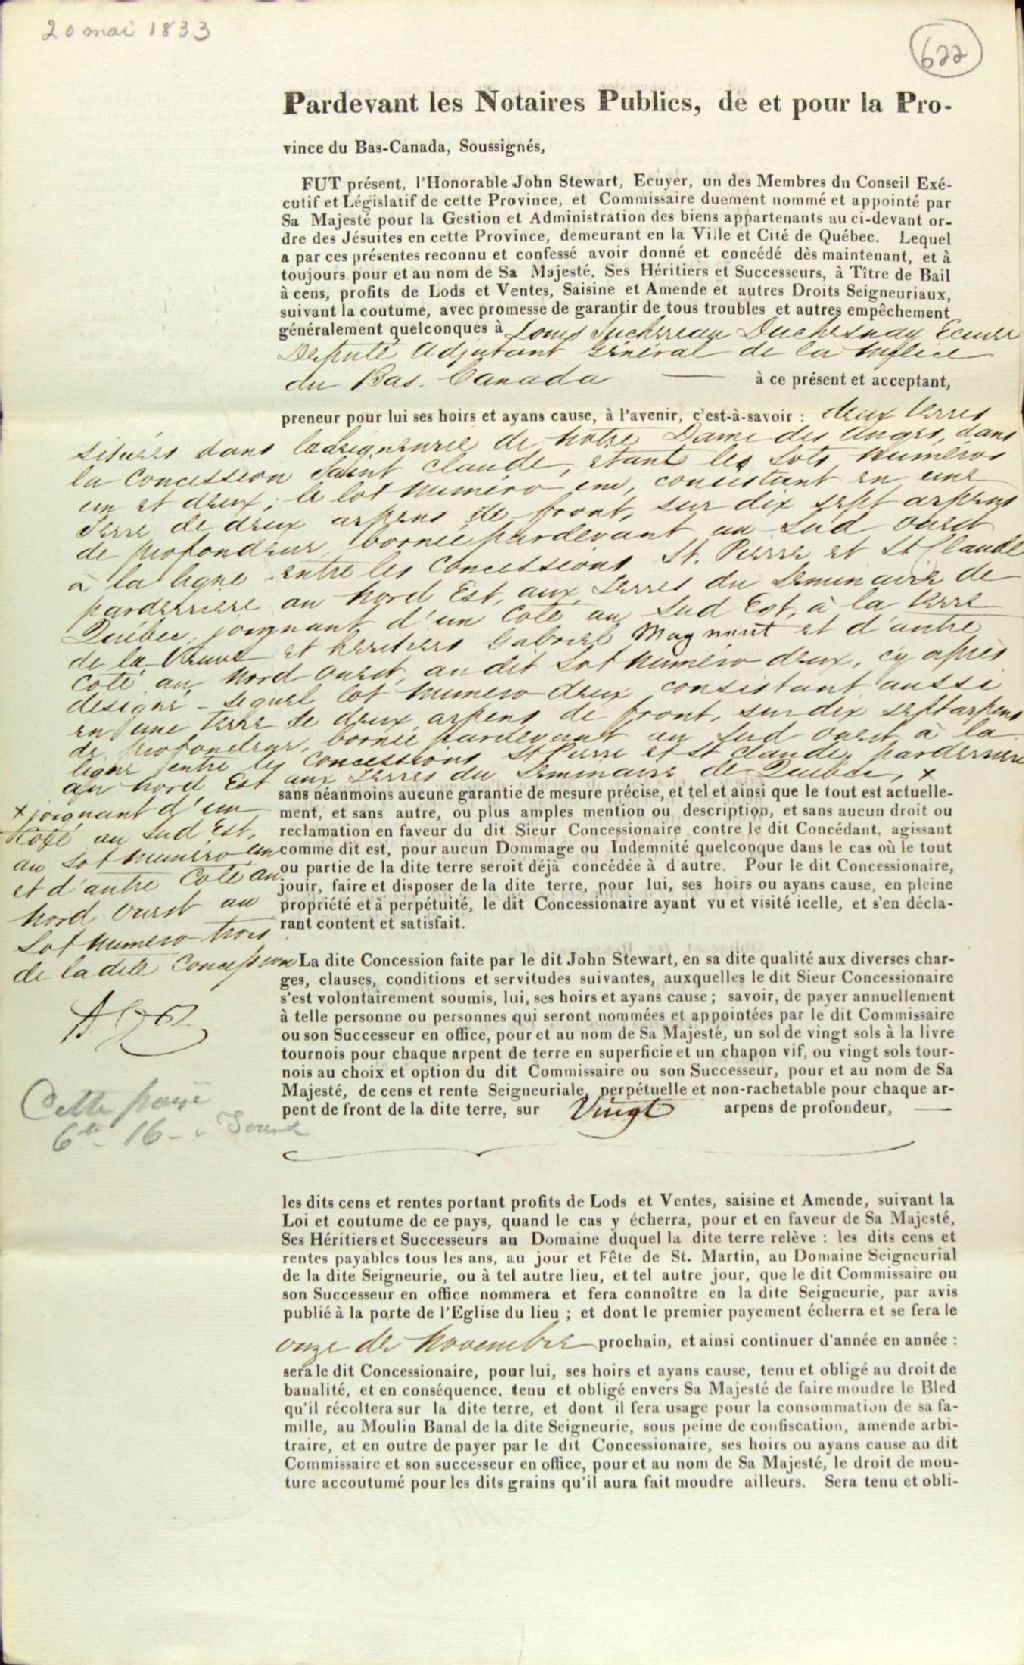 20 mai 1833
622
Pardevant les Notaires Publics, de et pour la Pro-
vince du Bas-Canada, Soussignés,
FUT présent, l'Honorable John Stewart, Ecuyer, un des Membres du Conseil Exé-
cutif et Législatif de cette Province, et Commissaire duement nommé et appointé par
Sa Majesté pour la Gestion et Administration des biens appartenants au ci-devant or-
dre des Jésuites en cette Province, demeurant en la Ville et Cité de Québec. Lequel
a par ces présentes reconnu et confessé avoir donné et concédé dès maintenant, et à
toujours pour et au nom de Sa Majesté, Ses Héritiers et Successeurs, à Tître de Bail
à cens, profits de Lods et Ventes, Saisine et Amende et autres Droits Seigneuriaux,
suivant la coutume, avec promesse de garantir de tous troubles et autres empêchement
généralement quelconques à Louis Juchereau Duchesnay Ecuier
Deputé Adjutant Général de la Milice
du Bas. Canada — à ce présent et acceptant,
preneur pour lui ses hoirs et ayans cause, à l'avenir, c'est-à-savoir : deux terres
situées dans la seigneurie de Notre Dame des Anges, dans
la concession Saint Claude, etant les Lots Numéros
un et deux; le lot Numéro un, consistant en une
terre de deux arpens de front, sur dix sept arpens
de profondeur, bornée pardevant au Sud Ouest
à la ligne entre les concessions St. Pierre et St Claude
parderriere au Nord Est, aux terres du Seminaire de
Québec, joignant d'un coté au Sud Est, à la terre
de la Veuve et heritiers Gabriel Magnant et d'autre
coté au Nord Ouest, au dit Lot Numéro deux, cy après
designé - lequel lot Numéro deux consistant aussi
en une terre de deux arpens de front, sur dix sept arpens
de profondeur, bornée pardevant au Sud Ouest à la
ligne entre les concessions St Pierre et St Claude, parderriere
au Nord Est aux terres du Seminaire de Québec, x
x joignant d'un
coté au Sud Est,
au Lot Numéro un
et d'autre coté au
Nord Ouest au
Lot Numero trois
de la dite concession
sans néanmoins aucune garantie de mesure précise, et tel et ainsi que le tout est actuelle-
ment, et sans autre, ou plus amples mention ou description, et sans aucun droit ou
reclamation en faveur du dit Sieur Concessionaire contre le dit Concédant, agissant
comme dit est, pour aucun Dommage ou Indemnité quelconque dans le cas où le tout
ou partie de la dite terre seroit déjà concédée à d'autre. Pour le dit Concessionaire,
jouir, faire et disposer de la dite terre, pour lui, ses hoirs ou ayans cause, en pleine
propriété et à perpétuité, le dit Concessionaire ayant vu et visité icelle, et s'en décla-
rant content et satisfait.
La dite Concession faite par le dit John Stewart, en sa dite qualité aux diverses char-
ges, clauses, conditions et servitudes suivantes, auxquelles le dit Sieur Concessionaire
s'est volontairement soumis, lui, ses hoirs et ayans cause ; savoir, de payer annuellement
à telle personne ou personnes qui seront nommées et appointées par le dit Commissaire
ou son Successeur en office, pour et au nom de Sa Majesté, un sol de vingt sols à la livre
tournois pour chaque arpent de terre en superficie et un chapon vif, ou vingt sols tour-
nois au choix et option du dit Commissaire ou son Successeur, pour et au nom de Sa
Majesté, de cens et rente Seigneuriale, perpétuelle et non-rachetable pour chaque ar-
pent de front de la dite terre, sur Vingt arpens de profondeur, —
les dits cens et rentes portant profits de Lods et Ventes, saisine et Amende, suivant la
Loi et coutume de ce pays, quand le cas y écherra, pour et en faveur de Sa Majesté,
Ses Héritiers et Successeurs au Domaine duquel la dite terre relève : les dits cens et
rentes payables tous les ans, au jour et Fête de St. Martin, au Domaine Seigneurial
de la dite Seigneurie, ou à tel autre lieu, et tel autre jour, que le dit Commissaire ou
son Successeur en office nommera et fera connoître en la dite Seigneurie, par avis
publié à la porte de l'Eglise du lieu ; et dont le premier payement écherra et se fera le
onze de Novembre prochain, et ainsi continuer d'année en année :
sera le dit Concessionaire, pour lui, ses hoirs et ayans cause, tenu et obligé au droit de
banalité, et en conséquence, tenu et obligé envers Sa Majesté de faire moudre le Bled
qu'il récoltera sur la dite terre, et dont il fera usage pour la consommation de sa fa-
mille, au Moulin Banal de la dite Seigneurie, sous peine de confiscation, amende arbi-
traire, et en outre de payer par le dit Concessionaire, ses hoirs ou ayans cause au dit
Commissaire et son successeur en office, pour et au nom de Sa Majesté, le droit de mou-
ture accoutumé pour les dits grains qu'il aura fait moudre ailleurs. Sera tenu et obli-